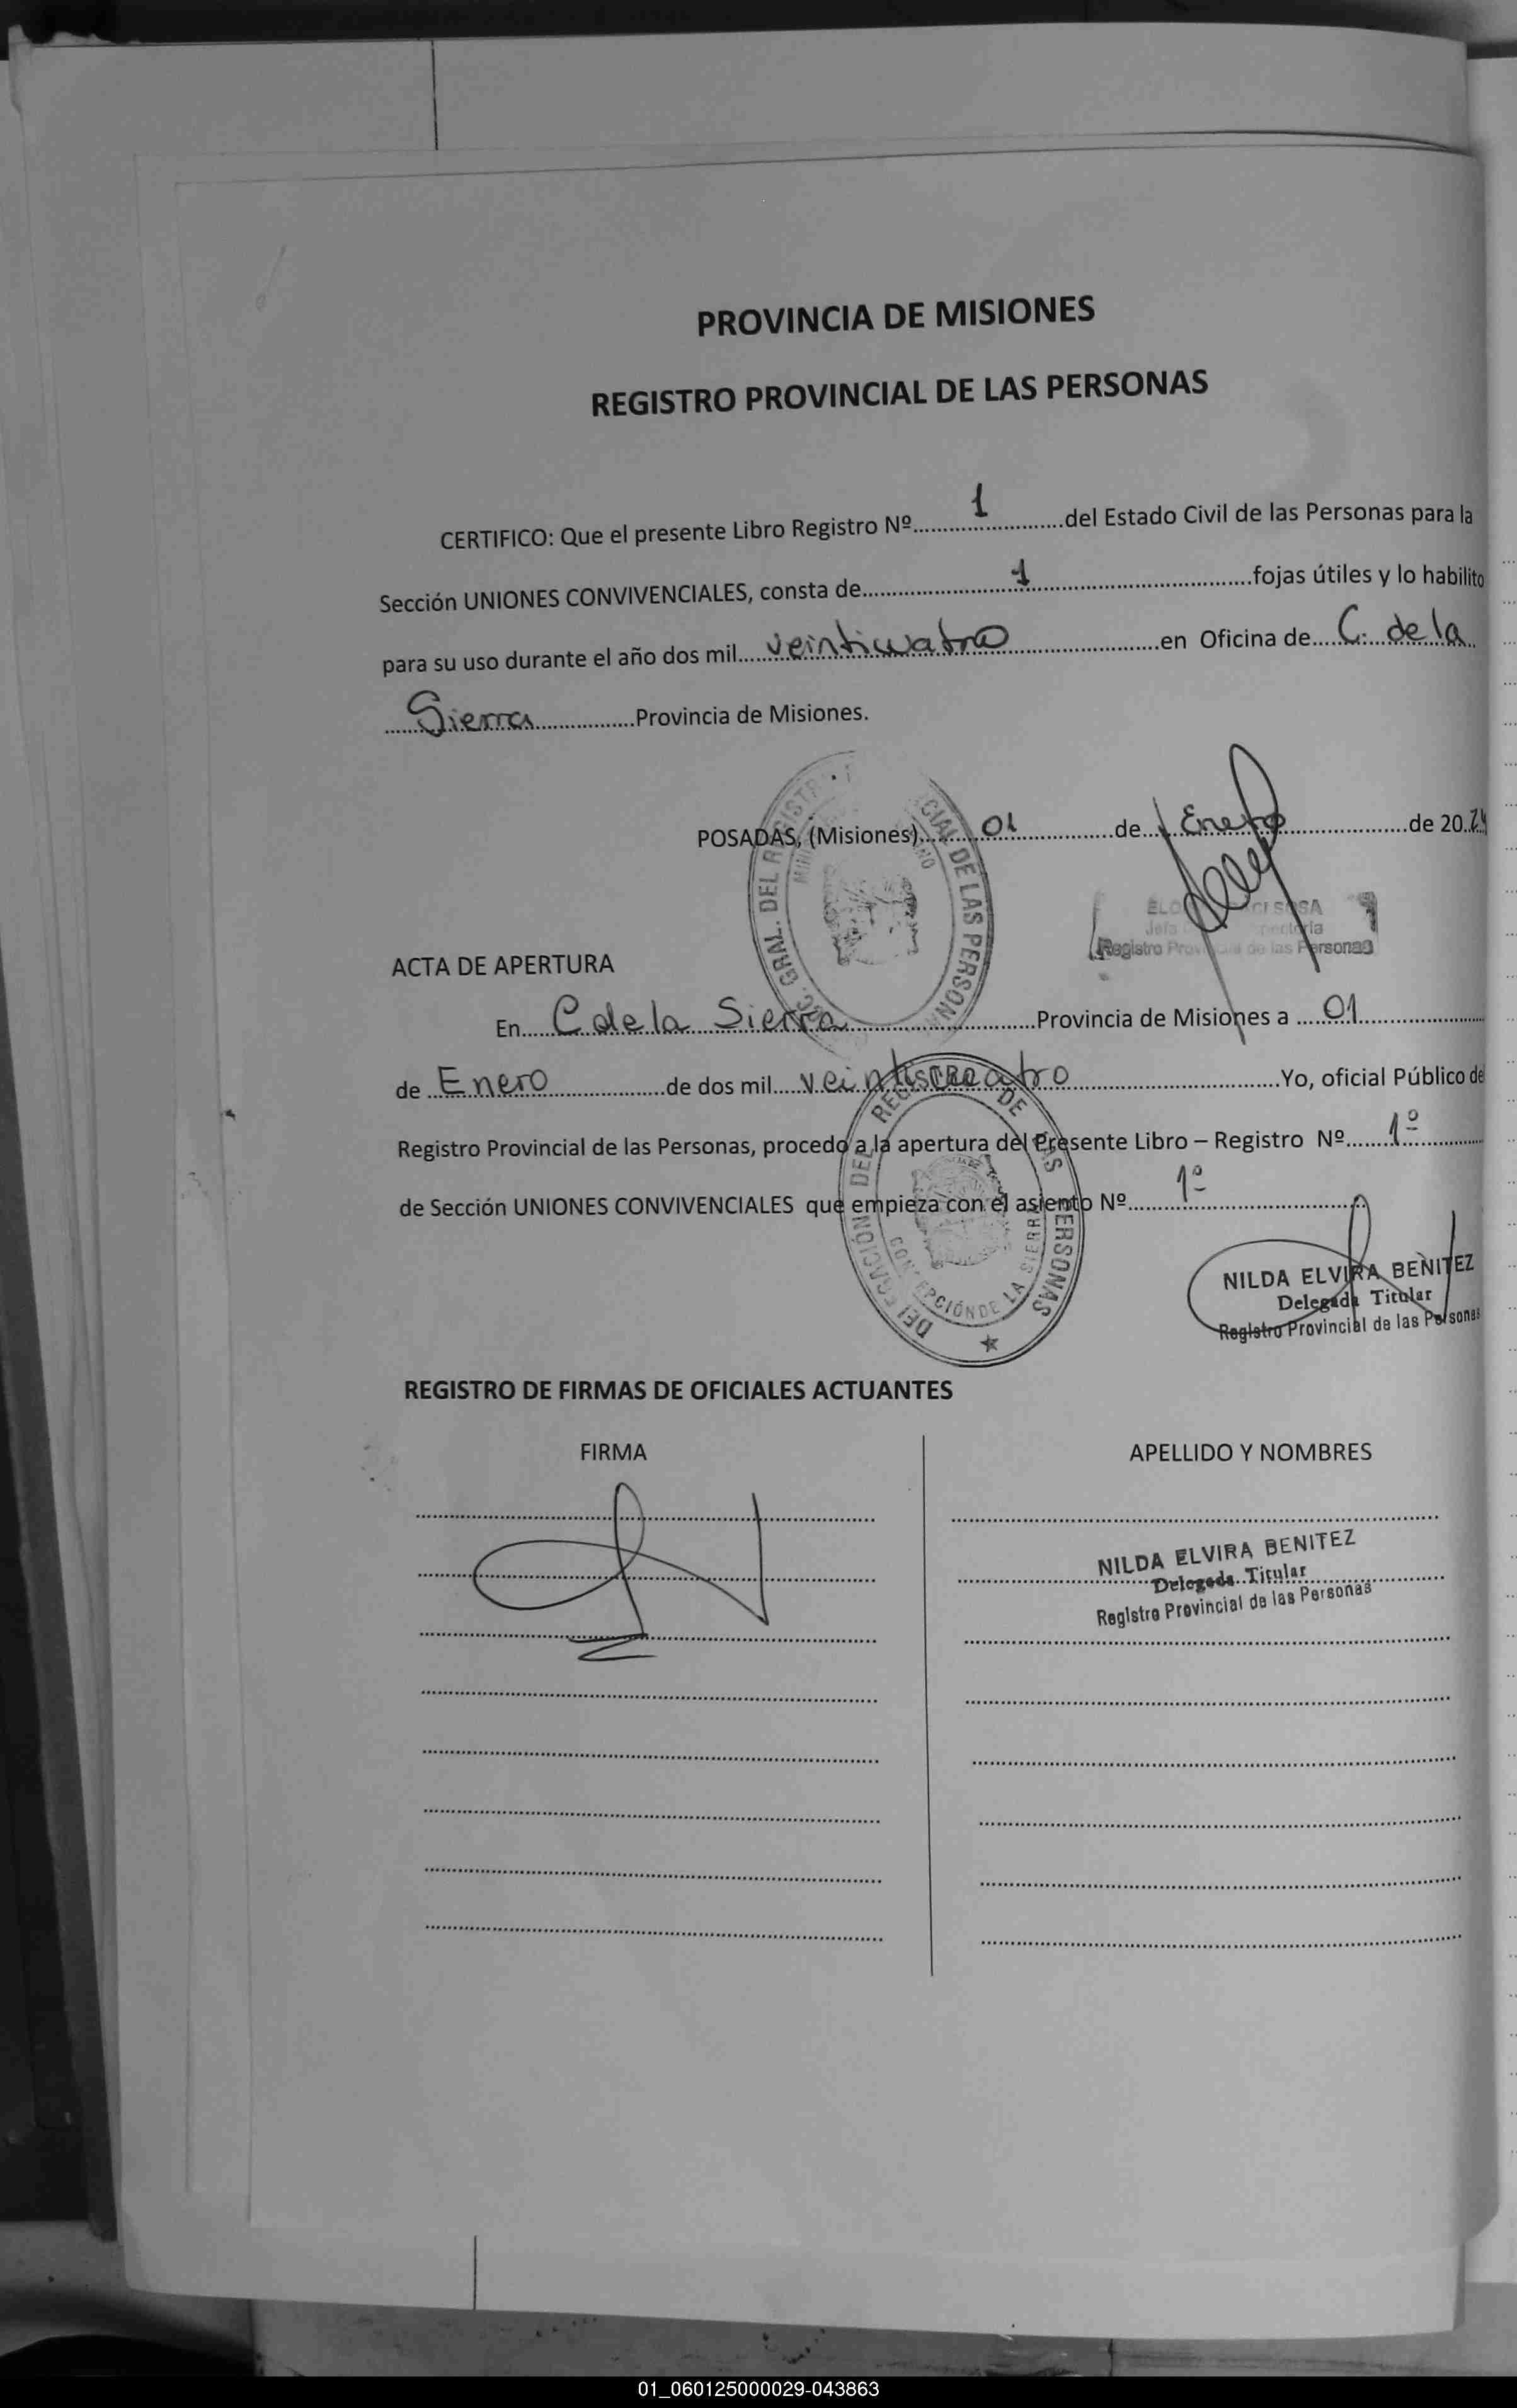 PROVINCIA DE MISIONES
REGISTRO PROVINCIAL DE LAS PERSONAS
CERTIFICO: Que el presente Libro Registro Nº 1 del Estado Civil de las Personas para la
Sección UNIONES CONVIVENCIALES, consta de 1 fojas útiles y lo habilito
para su uso durante el año dos mil veinticuatro en Oficina de C. de la
Sierra Provincia de Misiones.
POSADAS, (Misiones) 01 de Enero de 2024
SOSA
Registro Provincial de las Personas
ACTA DE APERTURA
En C de la Sierra Provincia de Misiones a 01
de Enero de dos mil veinticuatro Yo, oficial Público de
Registro Provincial de las Personas, procedo a la apertura del Presente Libro – Registro Nº 1º
de Sección UNIONES CONVIVENCIALES que empieza con el asiento Nº 1º
DELEGACIÓN DEL REGISTRO DE LAS PERSONAS
CONCEPCIÓN DE LA SIERRA
NILDA ELVIRA BENITEZ
Delegada Titular
Registro Provincial de las Personas
REGISTRO DE FIRMAS DE OFICIALES ACTUANTES
FIRMA APELLIDO Y NOMBRES
NILDA ELVIRA BENITEZ
Delegada Titular
Registro Provincial de las Personas
01_060125000029-043863